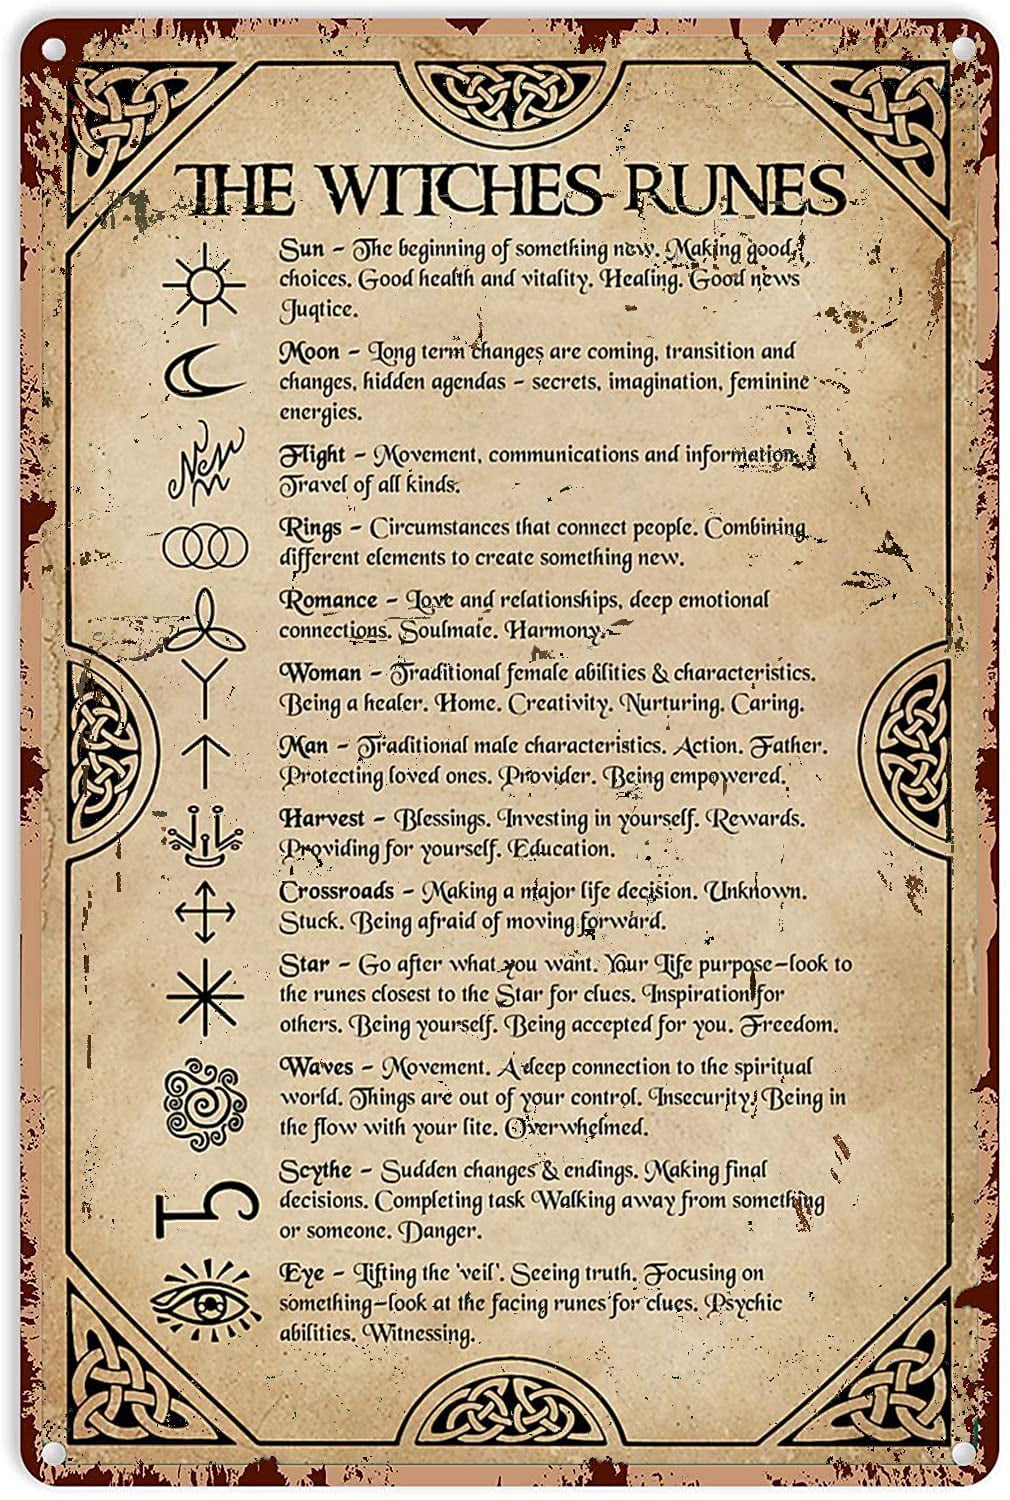 THE WITCHES RUNES
Sun - The beginning of something new. Making good
choices. Good health and vitality. Healing. Good news
Juqtice.
Moon - Long term changes are coming, transition and
changes, hidden agendas - secrets, imagination, feminine
energies.
Flight - Movement, communications and information.
Travel of all kinds.
Rings - Circumstances that connect people. Combining
different elements to create something new.
Romance - Love and relationships, deep emotional
connections. Soulmate. Harmony.
Woman - Traditional female abilities & characteristics.
Being a healer. Home. Creativity. Nurturing. Caring.
Man - Traditional male characteristics. Action. Father.
Protecting loved ones. Provider. Being empowered.
Harvest - Blessings. Investing in yourself. Rewards.
Providing for yourself. Education.
Crossroads - Making a major life decision. Unknown.
Stuck. Being afraid of moving forward.
Star - Go after what you want. Your Life purpose-look to
the runes closest to the Star for clues. Inspiration for
others. Being yourself. Being accepted for you. Freedom.
Waves - Movement. A deep connection to the spiritual
world. Things are out of your control. Insecurity. Being in
the flow with your lite. Overwhelmed.
Scythe - Sudden changes & endings. Making final
decisions. Completing task Walking away from something
or someone. Danger.
Eye - Lifting the 'veil'. Seeing truth. Focusing on
something-look at the facing runes for clues. Psychic
abilities. Witnessing.